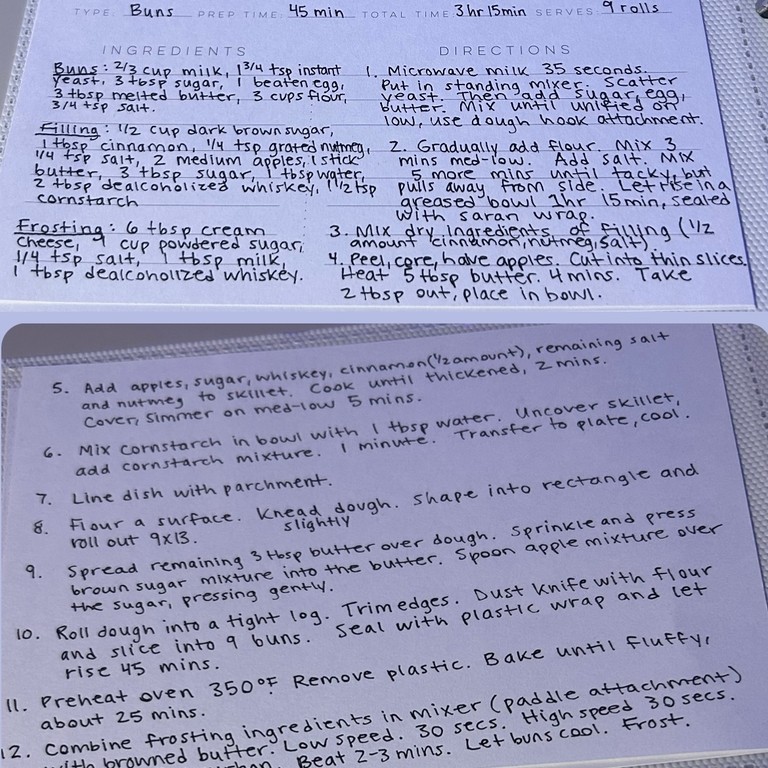 TYPE: Buns PREP TIME: 45 min TOTAL TIME 3 hr 15min SERVES: 9 rolls
INGREDIENTS
Buns: 2/3 cup milk, 1 3/4 tsp instant
yeast, 3 tbsp sugar, 1 beaten egg,
3 tbsp melted butter, 3 cups flour,
3/4 tsp salt.
Filling: 1/2 cup dark brown sugar,
1 tbsp cinnamon, 1/4 tsp grated nutmeg,
1/4 tsp salt, 2 medium apples, 1 stick
butter, 3 tbsp sugar, 1 tbsp water,
2 tbsp dealcoholized whiskey, 1 1/2 tsp
cornstarch
Frosting: 6 tbsp cream
cheese, 1 cup powdered sugar,
1/4 tsp salt, 1 tbsp milk,
1 tbsp dealcoholized whiskey.
DIRECTIONS
1. Microwave milk 35 seconds.
Put in standing mixer. Scatter
yeast. Then add sugar, egg,
butter. Mix until unified on
low, use dough hook attachment.
2. Gradually add flour. Mix 3
mins med-low. Add salt. Mix
5 more mins until tacky, but
pulls away from side. Let rise in a
greased bowl 1hr 15min, sealed
with saran wrap.
3. Mix dry ingredients of filling (1/2
amount cinnamon, nutmeg, salt).
4. Peel, core, halve apples. Cut into thin slices.
Heat 5 tbsp butter. 4 mins. Take
2 tbsp out, place in bowl.
5. Add apples, sugar, whiskey, cinnamon (1/2 amount), remaining salt
and nutmeg to skillet. Cook until thickened, 2 mins.
Cover, simmer on med-low 5 mins.
6. Mix cornstarch in bowl with 1 tbsp water. Uncover skillet,
add cornstarch mixture. 1 minute. Transfer to plate, cool.
7. Line dish with parchment.
8. Flour a surface. Knead dough. Shape into rectangle and
slightly
roll out 9x13.
9. Spread remaining 3 tbsp butter over dough. Sprinkle and press
brown sugar mixture into the butter. Spoon apple mixture over
the sugar, pressing gently.
10. Roll dough into a tight log. Trim edges. Dust knife with flour
and slice into 9 buns. Seal with plastic wrap and let
rise 45 mins.
11. Preheat oven 350°F. Remove plastic. Bake until fluffy,
about 25 mins.
12. Combine frosting ingredients in mixer (paddle attachment)
with browned butter. Low speed. 30 secs. High speed 30 secs.
Beat 2-3 mins. Let buns cool. Frost.